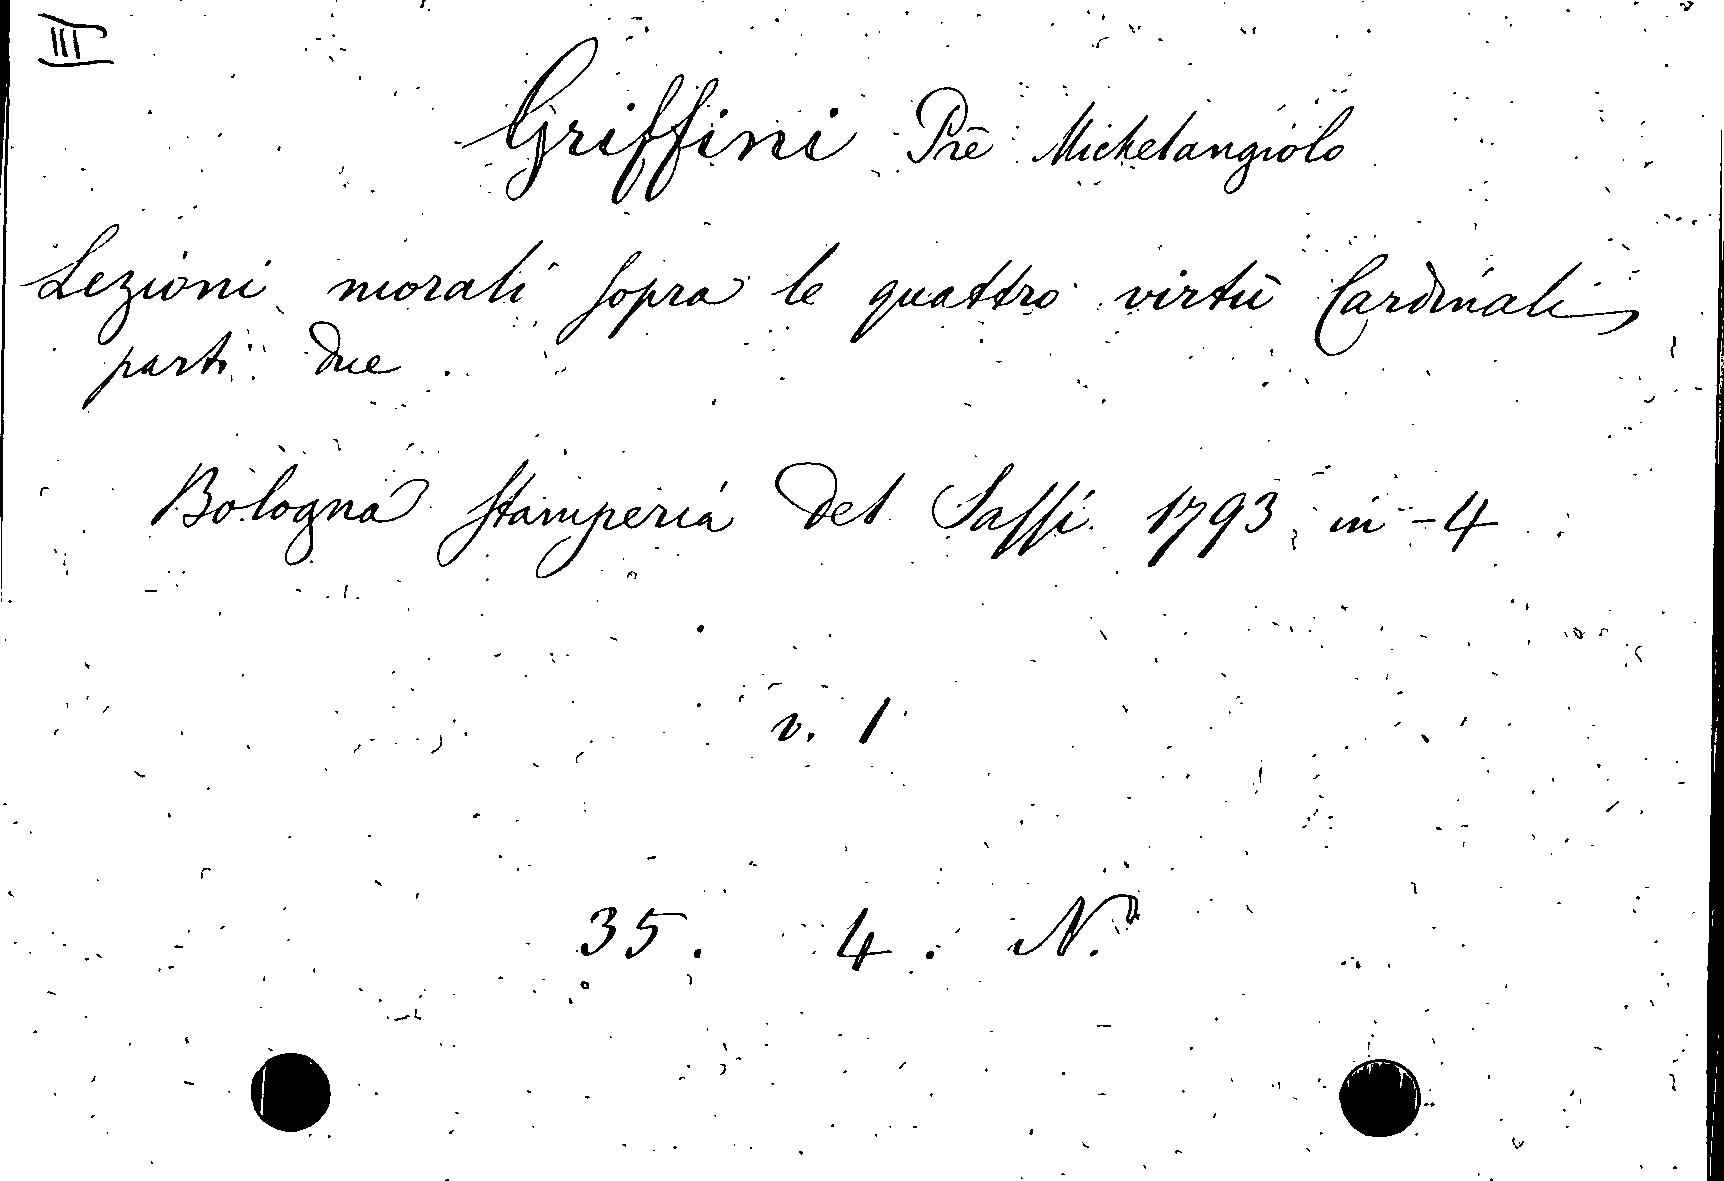 III
Griffini Pre Michelangiolo
Lezioni morali sopra le quattro virtù Cardinali
parti due
Bologna Stamperia del Sassi 1793 in-4
v. 1
35. 4. N.